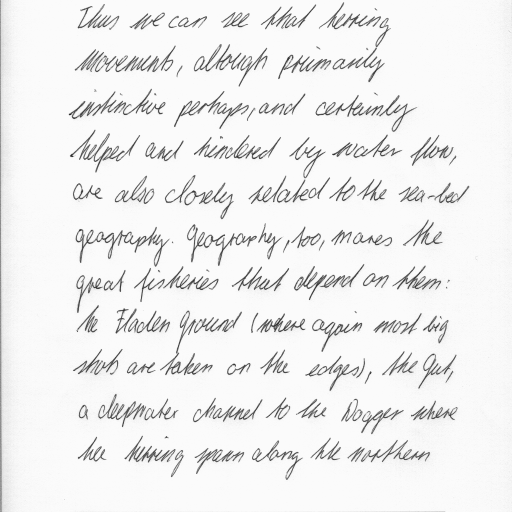 Thus we can see that herring
movements, altough primarily
instinctive perhaps, and certainly
helped and hindered by water flow,
are also closely related to the sea-bed
geography. Geography, too, makes the
great fisheries that depend on them:
the Fladen Ground (where again most big
shots are taken on the edges), the Gut,
a deepwater channel to the Dogger where
hee herring spawn along the northern